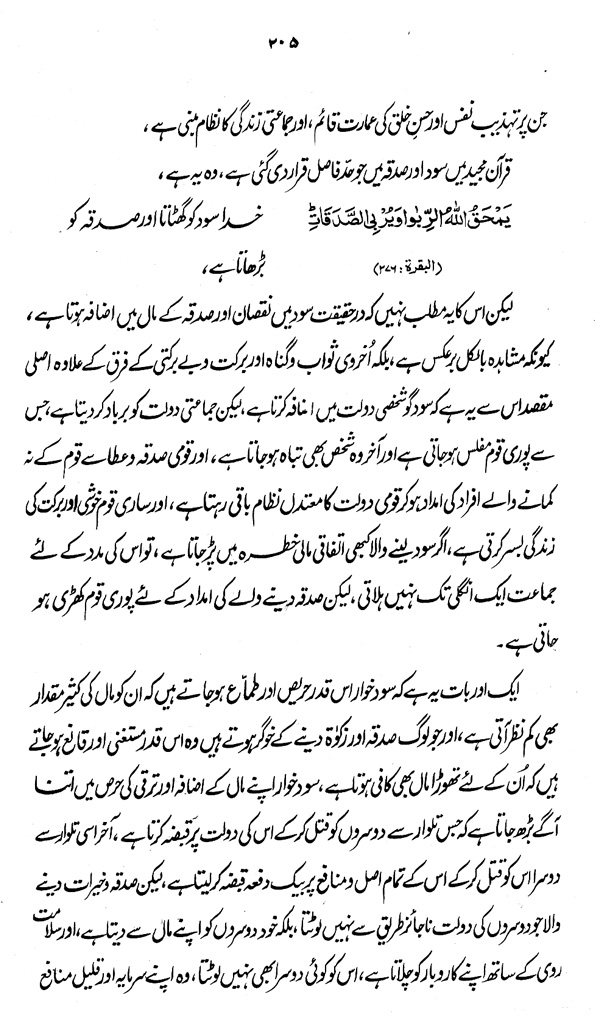 ۲۰۵
جن پر تہذیب نفس اور حسن خلق کی عمارت قائم، اور جماعتی زندگی کا نظام مبنی ہے،
قرآن مجید میں سود اور صدقہ میں جو حدِّ فاصل قرار دی گئی ہے، وہ یہ ہے،
يَمْحَقُ اللّٰهُ الرِّبٰوا وَيُرْبِي الصَّدَقَاتِ خدا سود کو گھٹاتا اور صدقہ کو
(البقرة : ۲۷۶) بڑھاتا ہے،
لیکن اس کا یہ مطلب نہیں کہ درحقیقت سود میں نقصان اور صدقہ کے مال میں اضافہ ہوتا ہے،
کیونکہ مشاہدہ بالکل برعکس ہے، بلکہ اُخروی ثواب و گناہ اور برکت و بے برکتی کے فرق کے علاوہ اصلی
مقصد اس سے یہ ہے کہ سود گو شخصی دولت میں اضافہ کرتا ہے، لیکن جماعتی دولت کو برباد کر دیتا ہے، جس
سے پوری قوم مفلس ہو جاتی ہے اور آخر وہ شخص بھی تباہ ہو جاتا ہے، اور قومی صدقہ و عطا سے قوم کے نہ
کمانے والے افراد کی امداد ہو کر قومی دولت کا معتدل نظام باقی رہتا ہے، اور ساری قوم خوشی اور برکت کی
زندگی بسر کرتی ہے، اگر سود لینے والا کبھی اتفاقی مالی خطرہ میں پڑ جاتا ہے، تو اس کی مدد کے لئے
جماعت ایک انگلی تک نہیں ہلاتی، لیکن صدقہ دینے والے کی امداد کے لئے پوری قوم کھڑی ہو
جاتی ہے۔
ایک اور بات یہ ہے کہ سود خوار اس قدر حریص اور طمّاع ہو جاتے ہیں کہ ان کو مال کی کثیر مقدار
بھی کم نظر آتی ہے، اور جو لوگ صدقہ اور زکوٰۃ دینے کے خوگر ہوتے ہیں وہ اس قدر مستغنی اور قانع ہو جاتے
ہیں کہ اُن کے لئے تھوڑا مال بھی کافی ہوتا ہے، سود خوار اپنے مال کے اضافہ اور ترقی کی حرص میں اتنا
آگے بڑھ جاتا ہے کہ جس تلوار سے دوسروں کو قتل کر کے اس کی دولت پر قبضہ کرتا ہے، آخر اسی تلوار سے
دوسرا اس کو قتل کر کے اس کے تمام اصل و منافع پر بیک دفعہ قبضہ کر لیتا ہے، لیکن صدقہ و خیرات دینے
والا جو دوسروں کی دولت ناجائز طریق سے نہیں لوٹتا، بلکہ خود دوسروں کو اپنے مال سے دیتا ہے، اور سلامت
روی کے ساتھ اپنے کاروبار کو چلاتا ہے، اس کو کوئی دوسرا بھی نہیں لوٹتا، وہ اپنے سرمایہ اور قلیل منافع